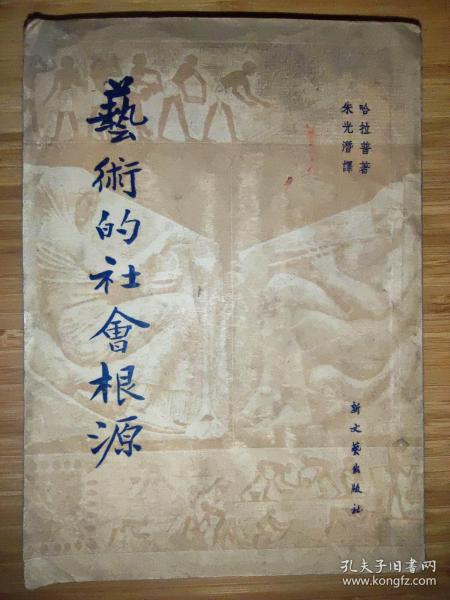 藝術的社會根源
哈拉普著
朱光潛譯
新文藝出版社
孔夫子旧书网
www.kongfz.com